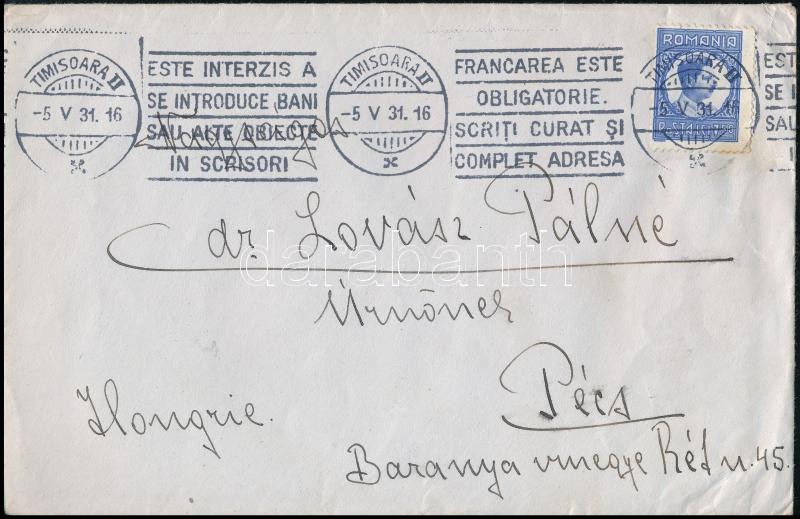 TIMISOARA II
-5 V 31. 16
ESTE INTERZIS A
SE INTRODUCE BANI
SAU ALTE OBIECTE
IN SCRISORI
TIMISOARA II
-5 V 31. 16
FRANCAREA ESTE
OBLIGATORIE.
SCRIȚI CURAT ȘI
COMPLET ADRESA
ROMANIA
TIMISOARA II
-5 V 31. 16
EST
SE I
SAU
I
Nagyságos
dr. Lovász Pálné
Úrnőnek
Pécs
Hongrie.
Baranya vmegye Rét u. 45.
darabanth